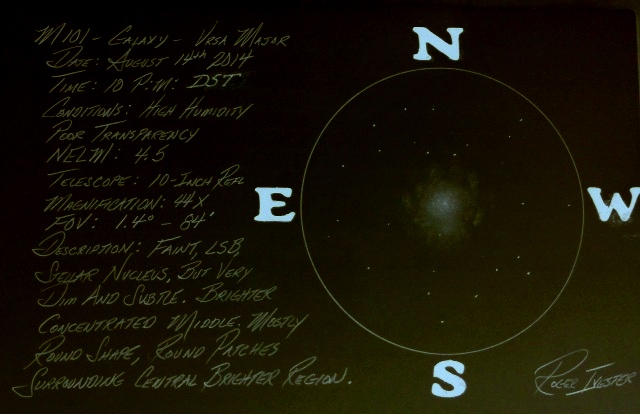 M101 - Galaxy - Ursa Major
Date: August 14th 2014
Time: 10 P:M: DST
Conditions: High Humidity
Poor Transparency
NELM: 4.5
Telescope: 10-Inch Refl
Magnification: 44X
FOV: 1.4° - 84'
Description: Faint, LSB,
Stellar Nucleus, But Very
Dim And Subtle. Brighter
Concentrated Middle, Mostly
Round Shape, Round Patches
Surrounding Central Brighter Region.
N
E
W
S
Roger Ivester